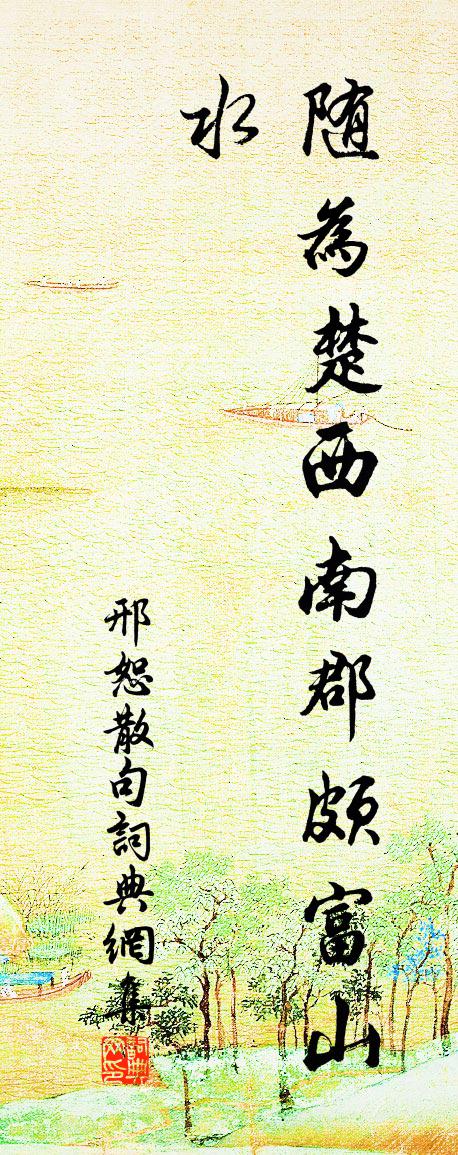 随為楚西南郡頗富山
水
邢恕散句詞典網集